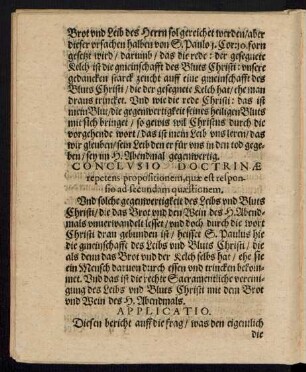 Brot vnd Leib des Herrn sol gereichet werden/aber
dieser vrsachen halben von S. Paulo 1. Cor. 10. forn
gesetzt wird/ darumb/ das die rede: der gesegnete
Kelch ist die gmeinschafft des Bluts Christi: vnsere
gedancken starck zeucht auff eine gmeinschafft des
Bluts Christi/ die der gesegnete Kelch hat/ ehe man
draus trincket. Vnd wie die rede Christi: das ist
mein Blut/ die gegenwertigkeit seines heiligen Bluts
mit sich bringet/ so gerus wil Christus durch die
vorgehende wort/ das ist mein Leib vns leren/ das
wir gleuben/ sein Leib den er für vns in den tod gege-
ben/ sey im H. Abendmal gegenwertig.
CONCLVSIO DOCTRINÆ
repetens propositionem, quæ est respon-
sio ad secundam quæstionem.
Vnd solche gegenwertigkeit des Leibs vnd Bluts
Christi/ die das Brot vnd den Wein des H. Abend-
mals vnuerwandelt lesset/ vnd doch durch die wort
Christi dran gebunden ist/ heisset S. Paulus hie
die gmeinschafft des Leibs vnd Bluts Christi/ die
als denn das Brot vnd der Kelch selbs hat/ ehe sie
ein Mensch daruon durch essen vnd trincken bekom-
met. Vnd das ist die rechte Sacramentliche vereini-
gung des Leibs vnd Bluts Christi mit dem Brot
vnd Wein des H. Abendmals.
APPLICATIO.
Diesen bericht auff die frag/ was den eigentlich
die